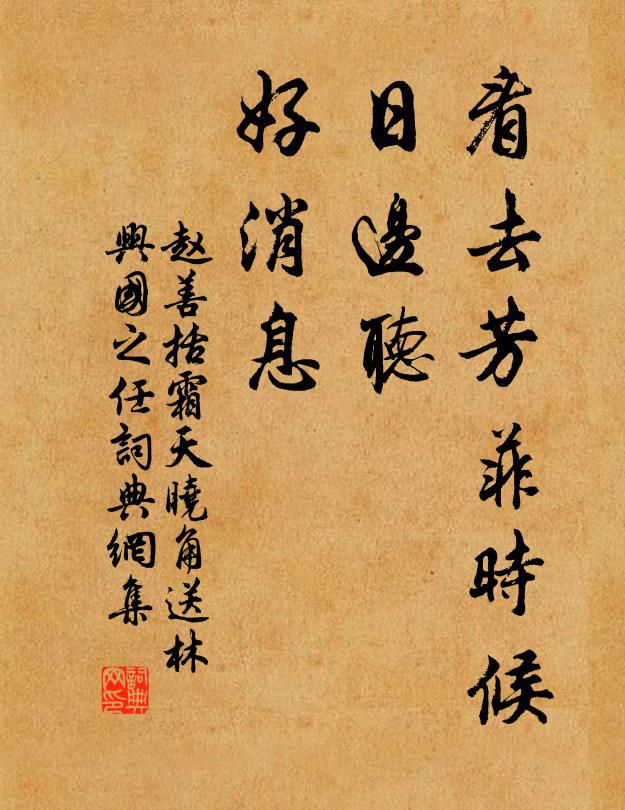 看去芳菲時候
日邊聽
好消息
赵善括霜天曉角送林
興國之任詞典網集
詞典网印